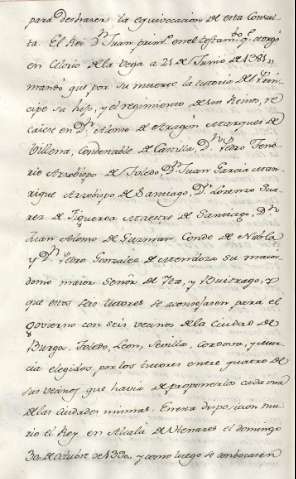 para deshacer la equivocacion de esta Consul
ta. El Rei Dn. Juan primo. en el testamto. q. otorgó
en Celorico dela vega a 21 de Junio de 1385,,
mandó que por su muerte la tutoria del Prin
cipe su hijo, y el regimiento de sus Reinos, re
caiese en Dn. Alonso de Aragon Marques de
Villena, Condestable de Castilla Dn. Pedro Teno
rio Arzobispo de Toledo Dn. Juan Garcia Man
rique Arzobispo de Santiago, Dn. Lorenzo Sua
rez de Figueroa Maestre de Santiago, Dn.
Juan Alonso de Guzman Conde de Niebla
y Dn. Pedro Gonzalez de Mendoza su mayor
domo maior Señor de Ita, y Buitrago, y
que estos seis tutores se aconsejasen para el
govierno con seis vecinos dela Ciudad de
Burgos, Toledo, Leon, Sevilla, Cordova, y Mur
cia elegidos, por los tutores entre quatro de
sus vecinos que havia de proponerles cada una
delas ciudades mismas. En esta disposicion mu
rio el Rey en Alcalá de Henares el domingo
30 de octubre de 1390, y como luego se